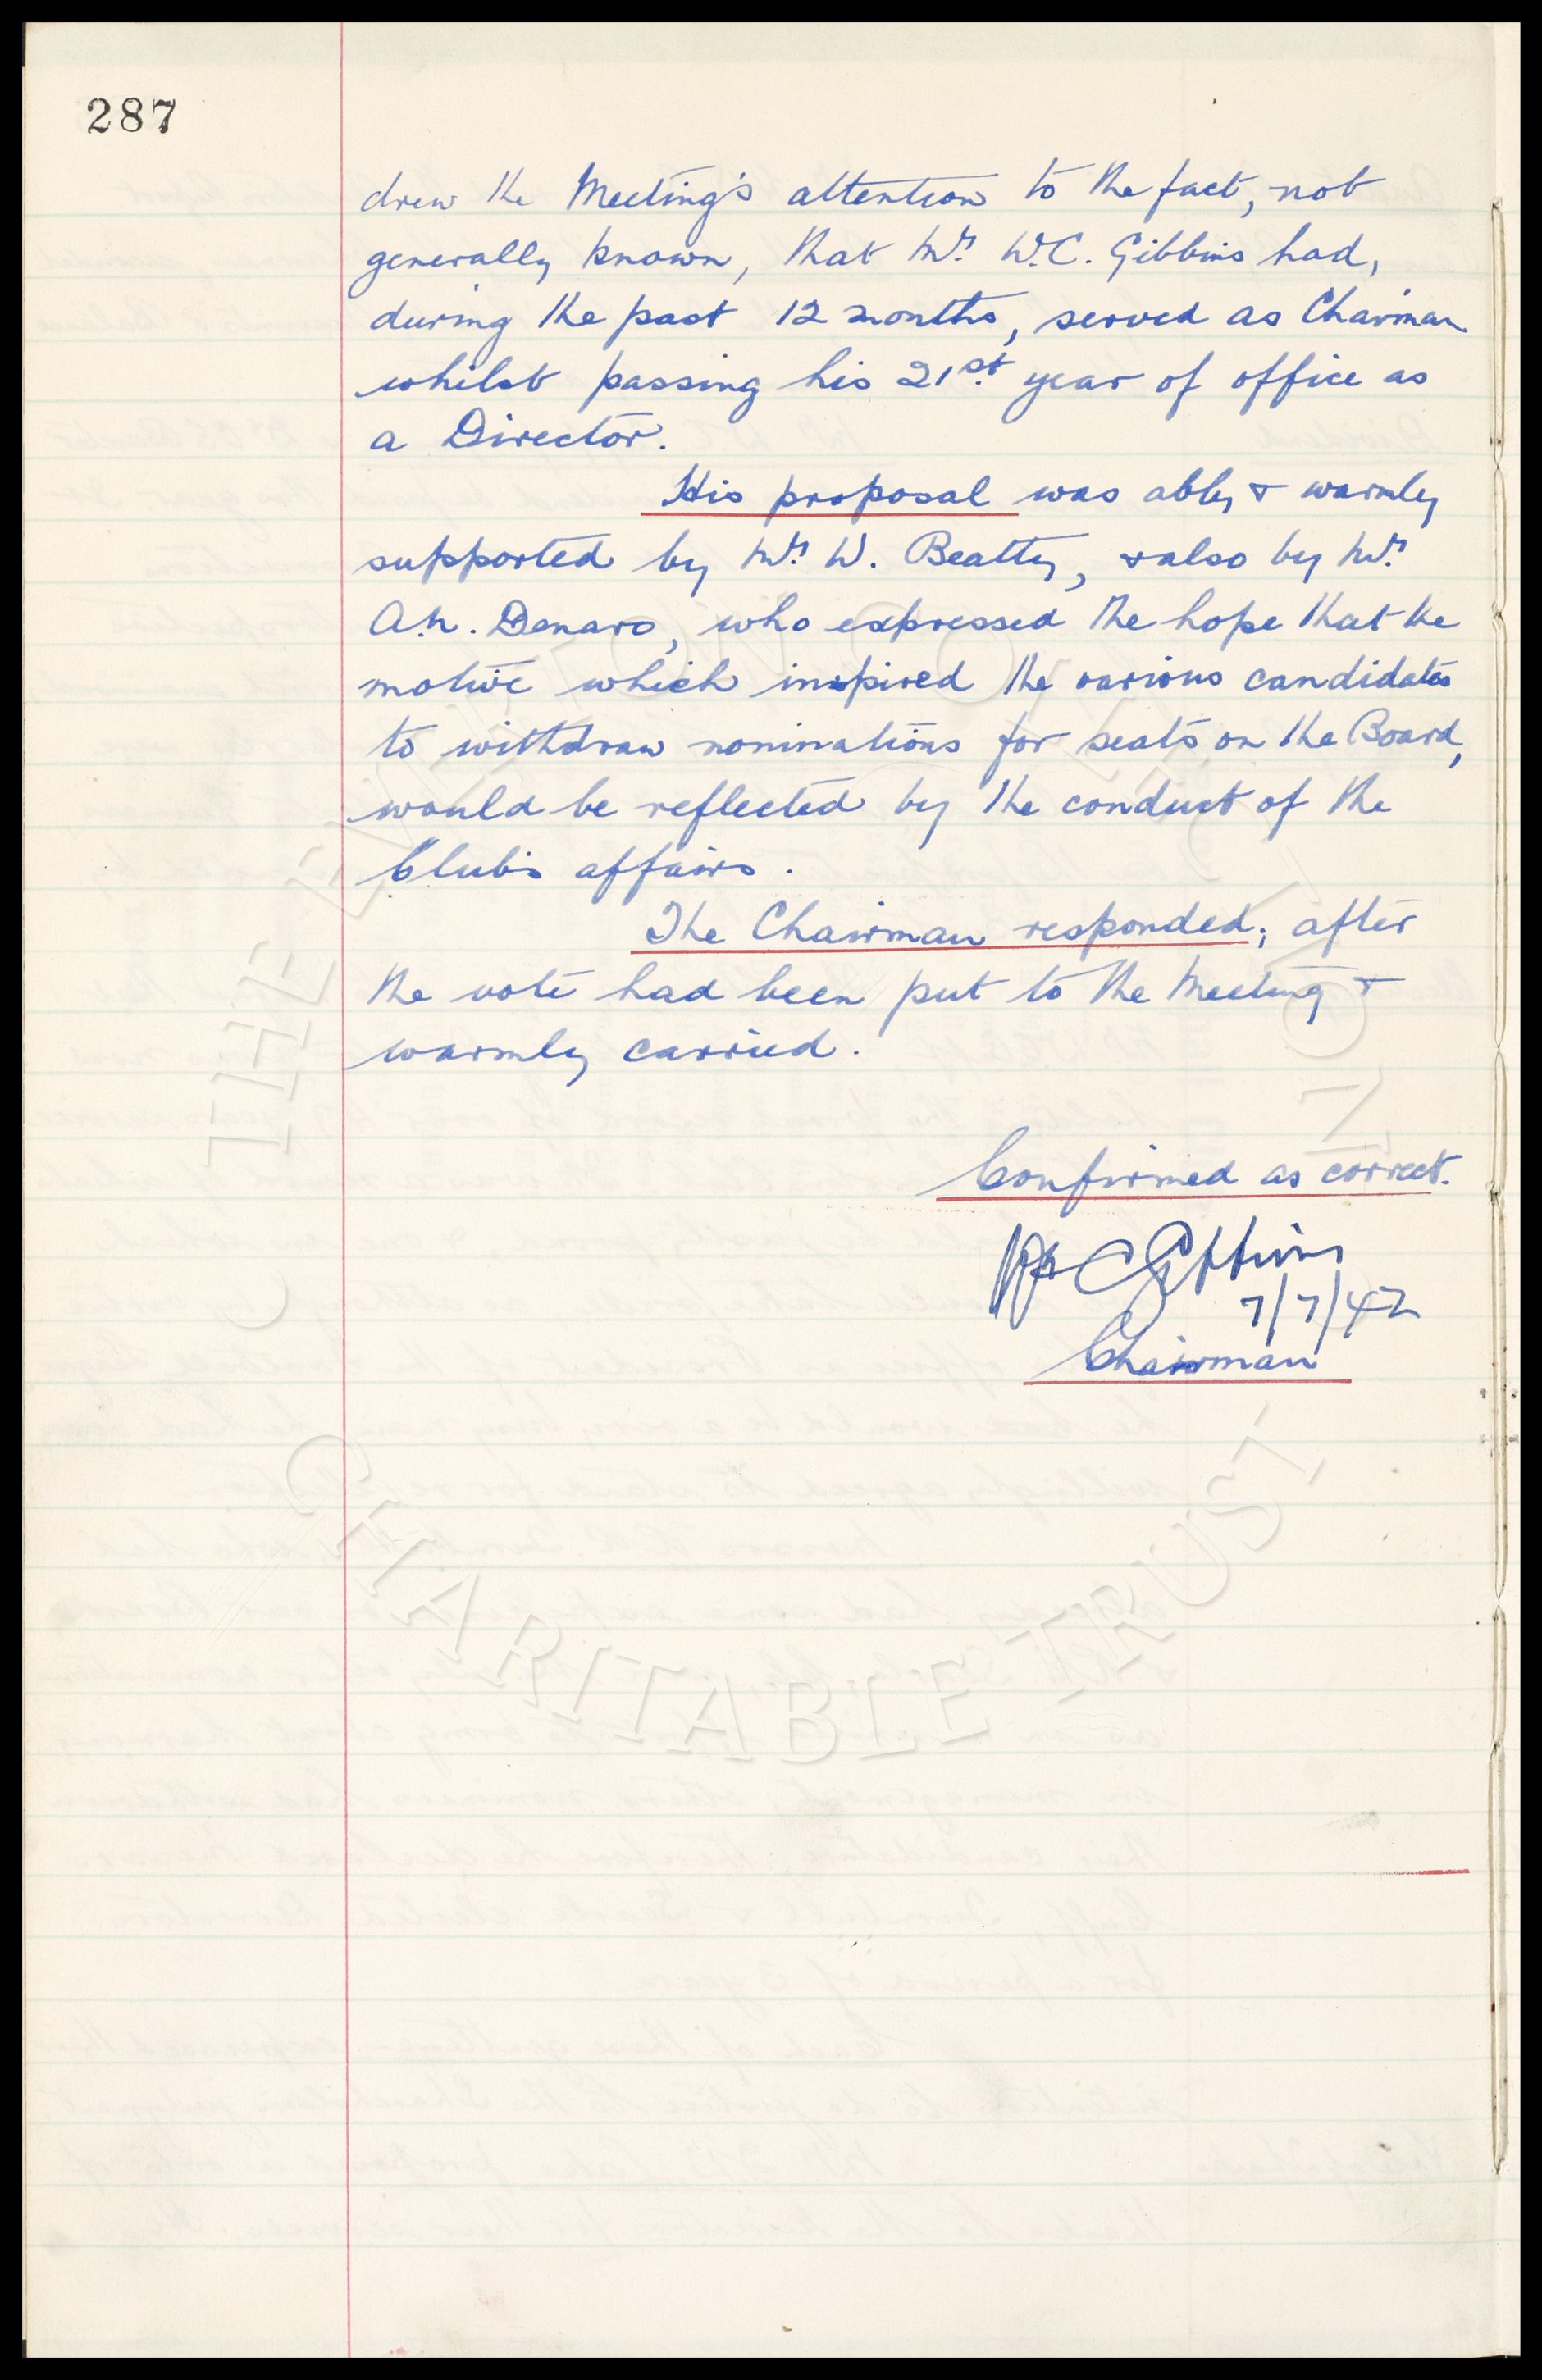 287
drew the Meeting's attention to the fact, not
generally known, that Mr. W.C. Gibbins had,
during the past 12 months, served as Chairman
whilst passing his 21st. year of office as
a Director.
His proposal was ably & warmly
supported by Mr. W. Beatty, & also by Mr.
A.N. Denaro, who expressed the hope that the
motive which inspired the various candidates
to withdraw nominations for seats on the Board,
would be reflected by the conduct of the
Club's affairs.
The Chairman responded, after
the vote had been put to the Meeting &
warmly carried.
Confirmed as correct.
W C Gibbins
7/7/42
Chairman
THE EVERTON COLLECTION
CHARITABLE TRUST